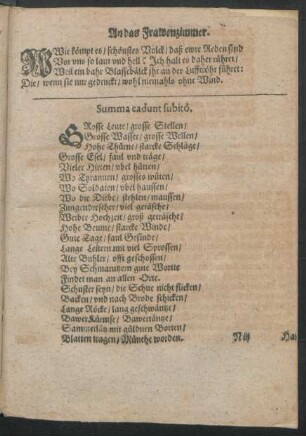 An das Frawenzimmer.
WIe kömpt es/ schönstes Volck/ daß ewre Reden sind
Vor uns so laut und hell? Ich halt es daher rühret/
Weil ein bahr Blasebälck jhr an der Lufftröhr führet:
Die/ wenn sie nur gedruckt/ wohl niemahls ohne Wind.
Summa cadunt subitò.
GRosse Leute/ grosse Stellen/
Grosse Wasser/ grosse Wellen/
Hohe Thürne/ starcke Schläge/
Grosse Esel/ faul und träge/
Vieler Hirten/ übel hütten/
Wo Tyrannen/ grosses wüten/
Wo Soldaten/ übel hausen/
Wo die Diebe/ stehlen/ maussen/
Zungendrescher/ viel geräusche/
Weiber Hochzeit/ groß geträsche/
Hohe Beume/ starcke Winde/
Gute Tage/ faul Gesinde/
Lange Leitern mit viel Sprossen/
Alte Buhler/ offt geschossen/
Bey Schmarutzern gute Worte
Findet man an allen Orte.
Schuster seyn/ die Schue nicht flicken/
Backen/ und nach Brode schicken/
Lange Röcke/ lang geschwäntze/
Bawer Kirmse/ Bawertäntze/
Sammetlätz mit güldnen Borten/
Blatten tragen/ Münche worden.
Nüs Hat